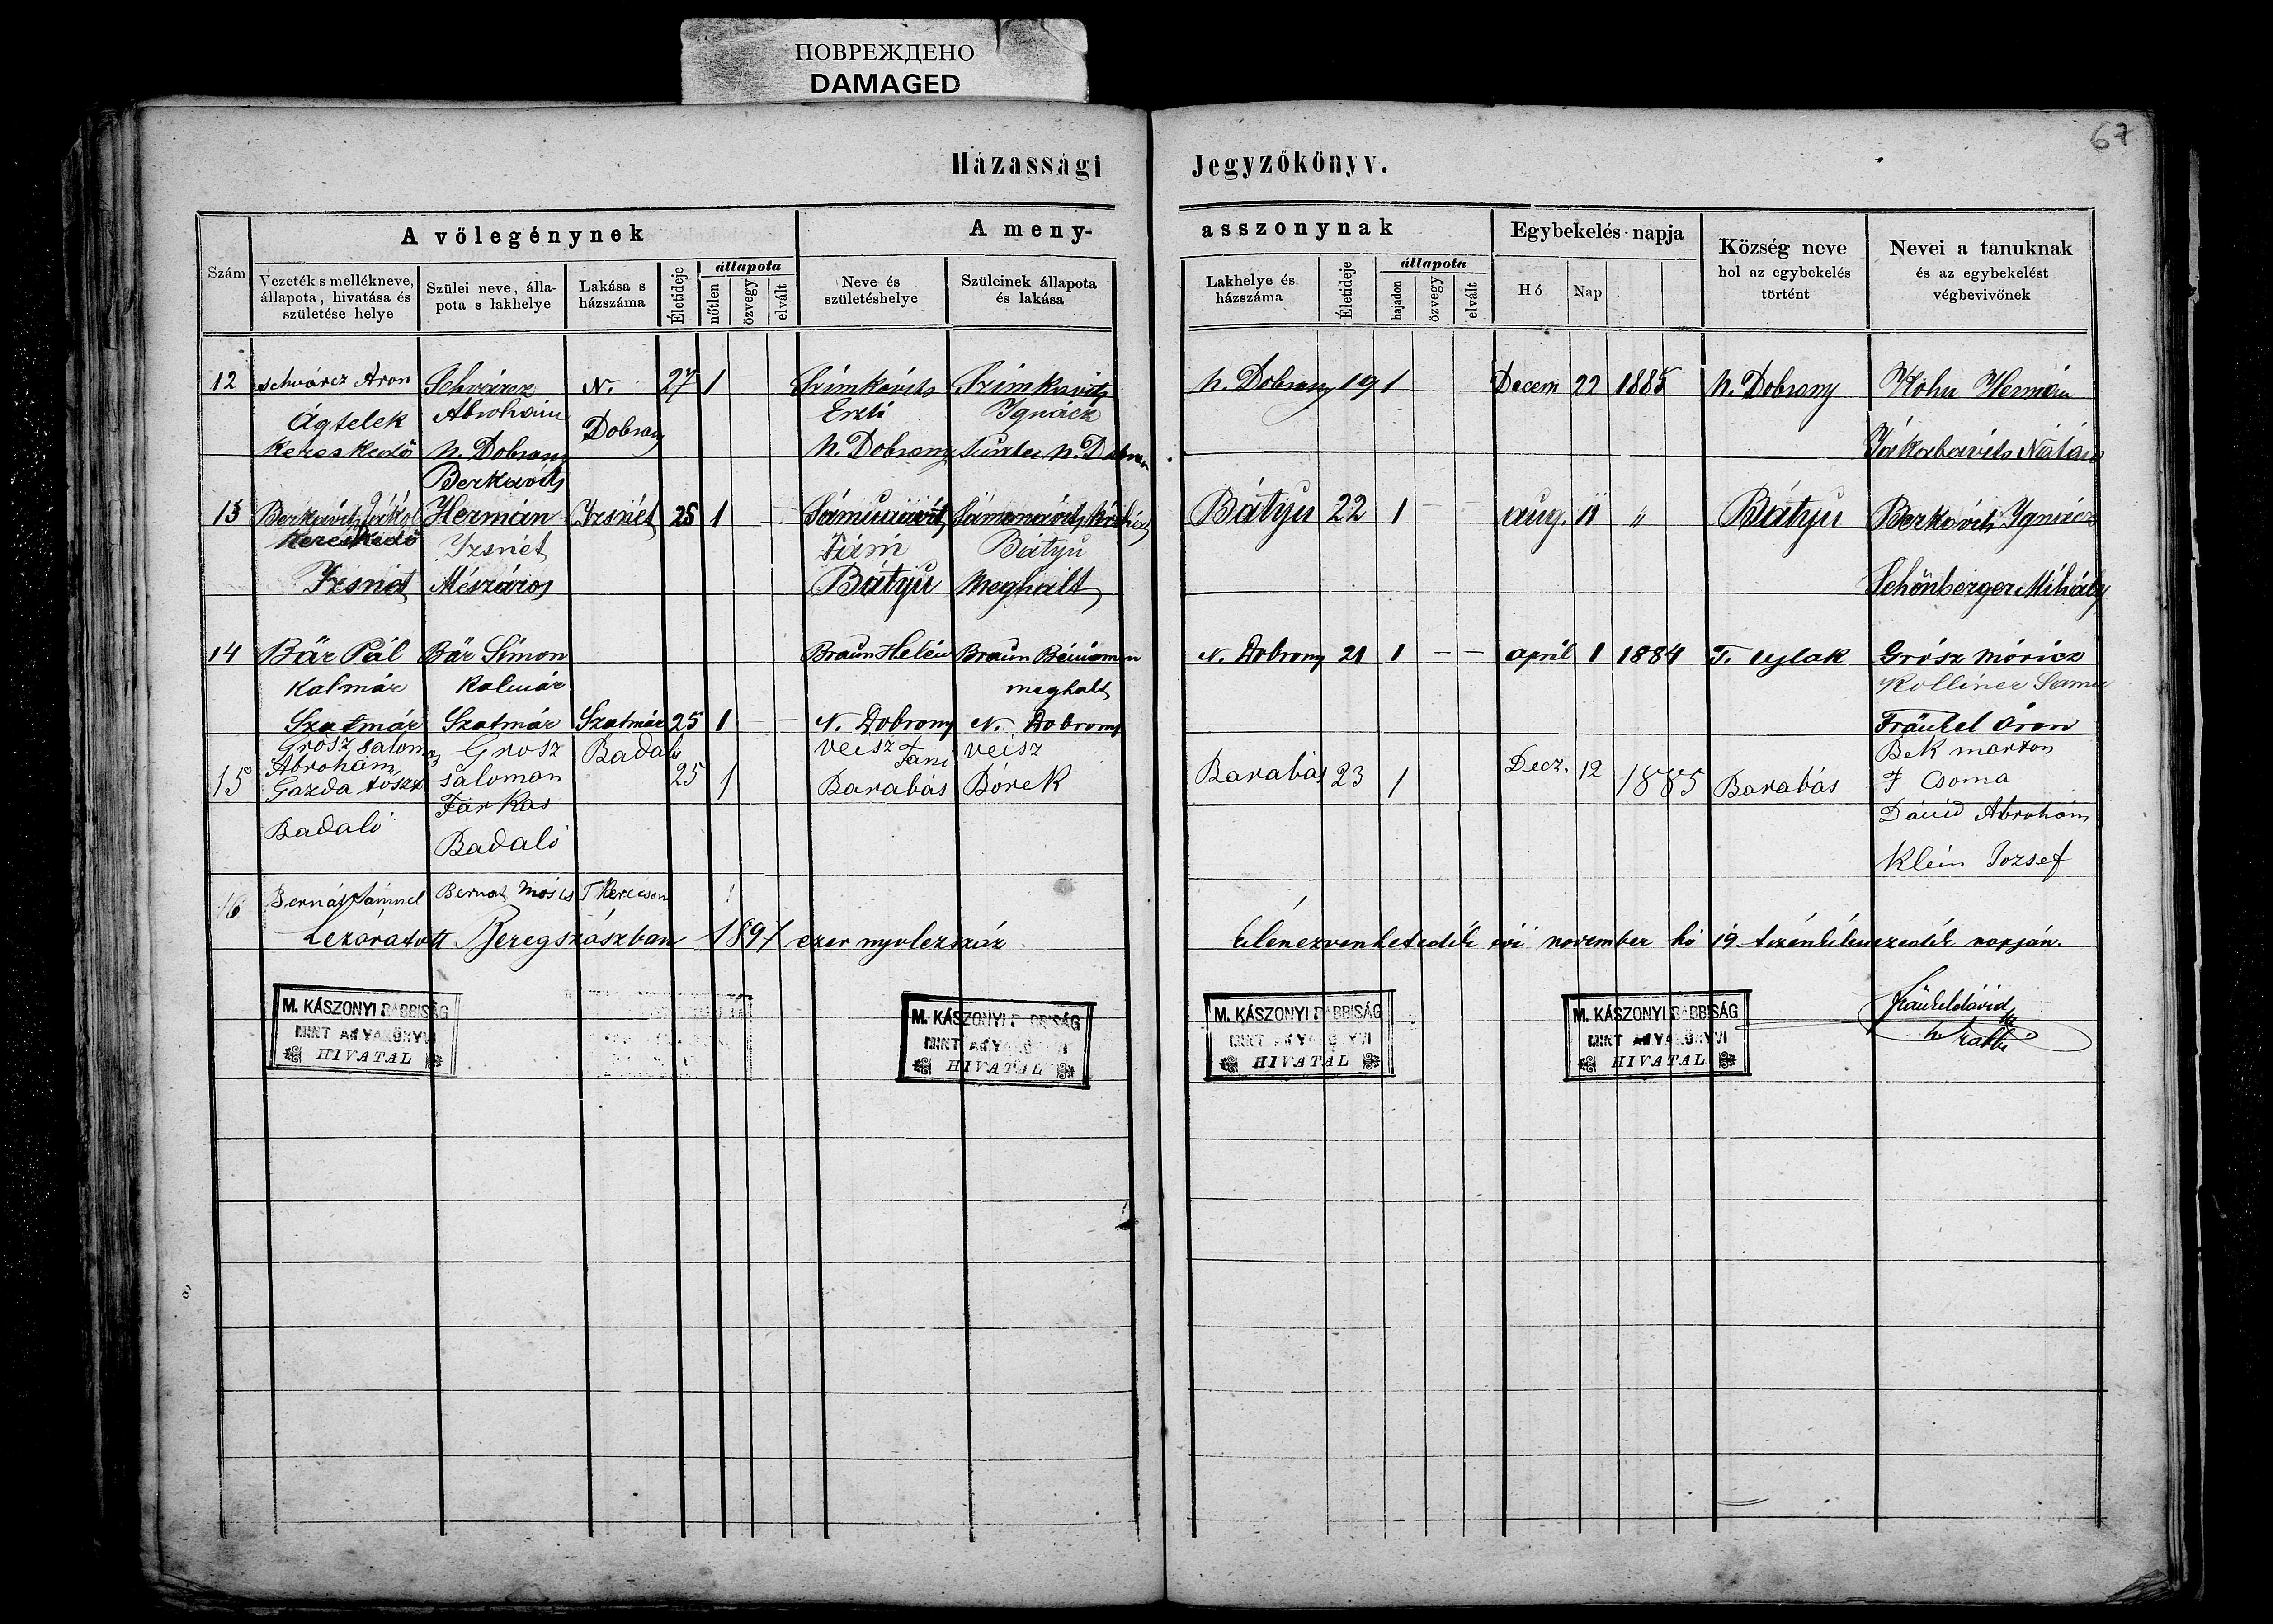 ПОВРЕЖДЕНО
DAMAGED
67
Házassági Jegyzőkönyv.
Szám
A vőlegénynek
Vezeték s mellékneve, állapota, hivatása és születése helye
Szülei neve, állapota s lakhelye
Lakása s házszáma
Életideje
állapota
nőtlen
özvegy
elvált
A menyasszonynak
Neve és születéshelye
Szüleinek állapota és lakása
Lakhelye és házszáma
Életideje
állapota
hajadon
özvegy
elvált
Egybekelés napja
Hó
Nap
Község neve
hol az egybekelés történt
Nevei a tanuknak
és az egybekelést végbevivőnek
12 Schvárcz Áron Schvárcz N. 27 1 Szimkovits Szimkovits N. Dobrony 19 1 Decem 22 1885 N. Dobrony Kohn Hermán
Ágtelek Abrohám Dobrony Erzti Ignácz
Kereskedő N. Dobrony N. Dobrony N. Dobrony Jákabávits Nátán
Berkávits
13 Berkávits Jákob Hermán Izsnét 25 1 Bátyu 22 1 aug. 11 " Bátyu Berkávits Ignácz
Kereskedő Izsnét Fáni Bátyu
Izsnét Mészáros Bátyu Meghalt Schönberger Mihály
14 Bär Pál Bär Simon Braun Helén Braun Béniamin N. Dobrony 21 1 — — april 1 1884 T. Ujlak Grósz Móricz
Kalmár Kalmár meghalt Kolliner Samu
Szatmár Szatmár Szatmár 25 1 — — N. Dobrony N. Dobrony Fränkel Áron
15 Grosz Salomon Grosz Badaló 25 1 Veisz Fani Veisz Barabás 23 1 Decz. 12 1885 Barabás Bek marton
Abrohám Salomon Barabás Bórek F Csoma
Gazda Farkas Dávid Abrohám
Badaló Badaló Klein Jozsef
16 Bernát Sámuel Bernat Móses T Kerecsen 1
Lezáratott Beregszászban 1897 ezer nyolczszáz kilenczvenhetedik évi november hó 19 tizenkilenczedik napján.
M. KÁSZONYI RABBISÁG
MINT ANYAKÖNYVI
HIVATAL
M. KÁSZONYI RABBISÁG
MINT ANYAKÖNYVI
HIVATAL
M. KÁSZONYI RABBISÁG
MINT ANYAKÖNYVI
HIVATAL
M. KÁSZONYI RABBISÁG
MINT ANYAKÖNYVI
HIVATAL
Fränkel Dávid
h. Rabbi